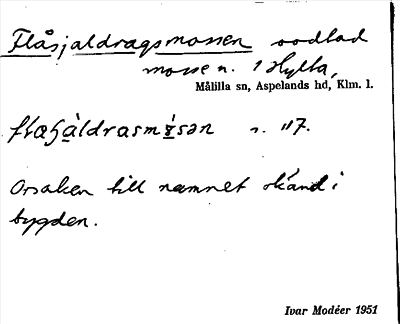 Flåsjaldragsmossen oodlad
mosse n. 1 Hylta,
Målilla sn, Aspelands hd, Klm. l.
n. 117.
Orsaken till namnet okänd i
bygden.
Ivar Modéer 1951